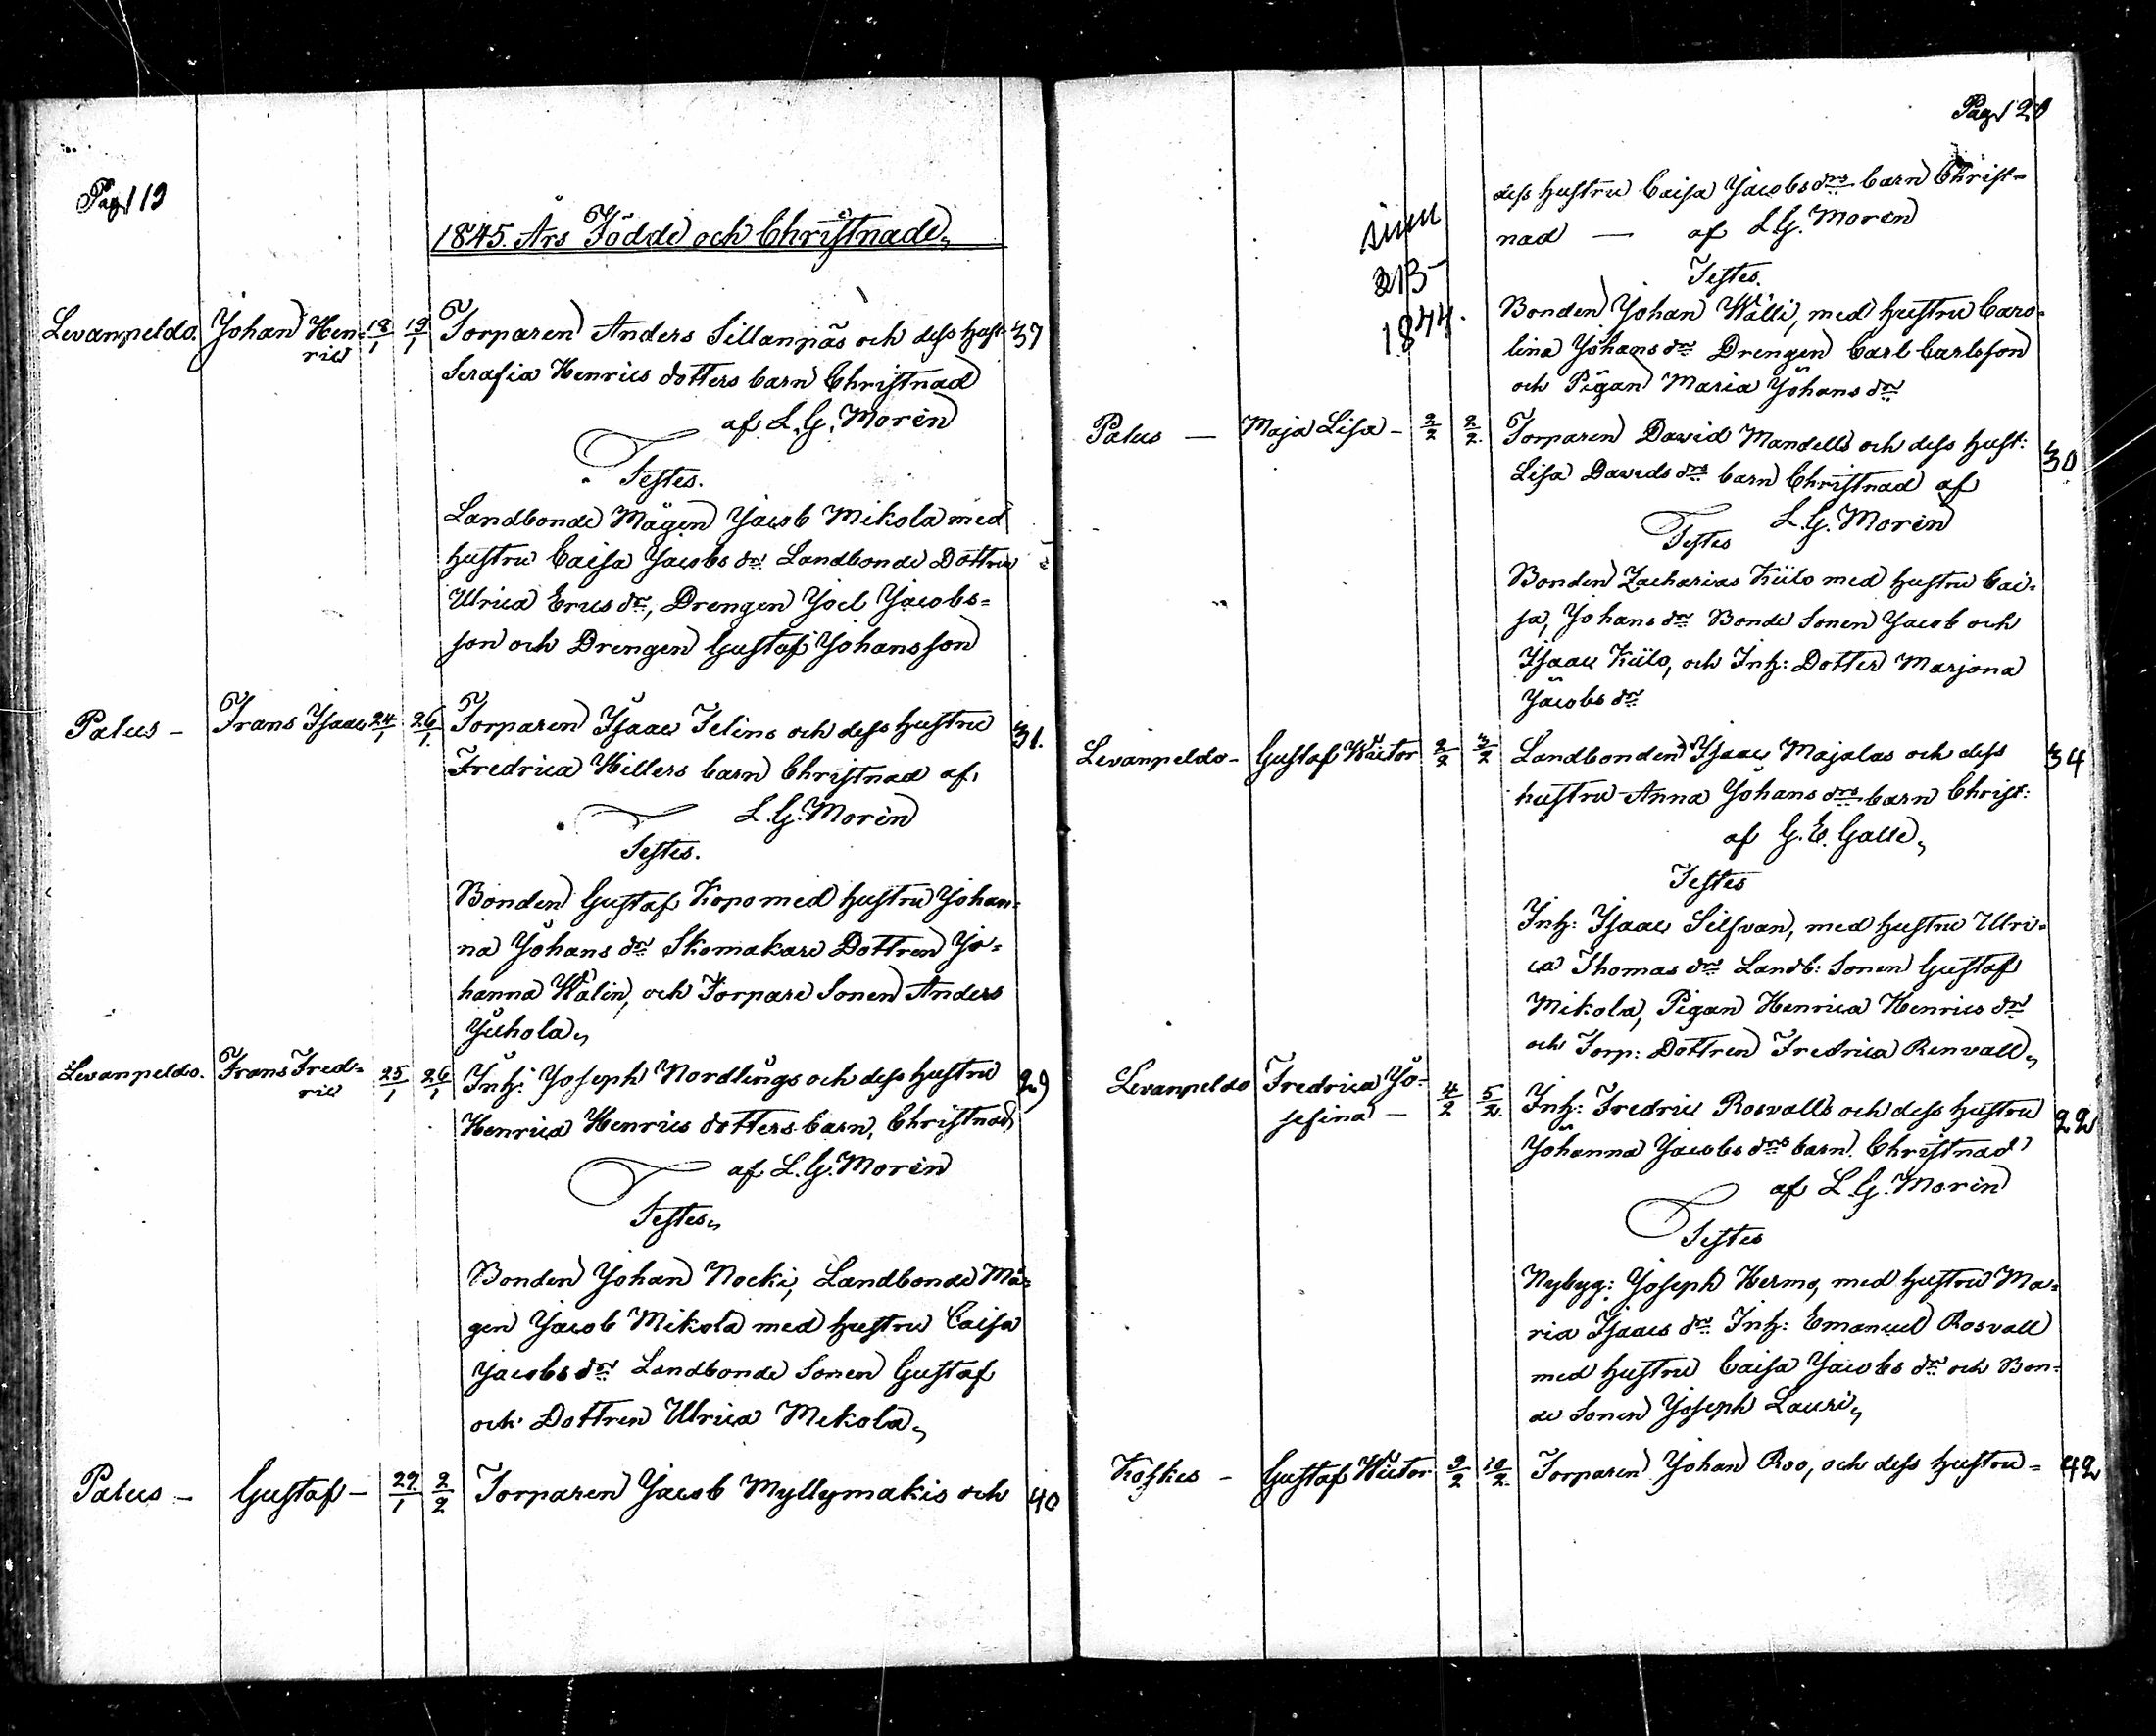 Pag 119
1845. Års Födde och Christnade,
Levanpeldo. Johan Hen= 18/1 19/1 Torparen Anders Sillanpäs och dess Hust: 37
ric Serafia Henrics dotters barn Christnad
af L.G. Morin
Testes.
Landbonde Mågen Jacob Mikola med
hustru Caisa Jacobs dr Landbonde Dottren
Ulrica Erics dr, Drengen Joel Jacobs=
son och Drengen Gustaf Johansson
Palus - Frans Isaac 24/1 26/1. Torparen Isaac Telins och dess hustru 31.
Fredrica Hillers barn Christnad af
L.G. Morin
Testes.
Bonden Gustaf Kopo med hustru Johan=
na Johans dr Skomakare Dottren Jo=
hanna Walin, och Torpare Sonen Anders
Juhola,
Levanpeldo. Frans Fred= 25/1 26/1 Inh: Joseph Nordlings och dess hustru 29
ric Henrica Henrics dotters barn, Christnad
af L.G. Morin
Testes,
Bonden Johan Nocki, Landbonde Må=
gen Jacob Mikola med hustru Caisa
Jacobs dr Landbonde Sonen Gustaf
och Dottren Ulrica Mikola,
Palus - Gustaf - 29/1 2/2 Torparen Jacob Myllymakis och 40
Pag 120
dess hustru Caisa Jacobs drs barn Christ=
nad — af L.G. Morin
Testes.
213
1844.
Bonden Johan Wälli, med hustru Caro=
lina Johans dr Drengen Carl Carlsson
och Pigan Maria Johans dr
Palus — Maja Lisa - 2/2 2/2. Torparen David Mandells och dess hust: 30
Lisa Davids drs barn Christnad af
L.G. Morin
Testes
Bonden Zacharias Külo med hustru Cai=
sa, Johans dr Bonde Sonen Jacob och
Isaac Külo, och Inh: Dotter Marjona
Jacobs dr
Levanpeldo - Gustaf Wictor 2/2 3/2 Landbonden Isaac Majalas och dess 34
hustru Anna Johans drs barn Christ:
af G.E. Galle,
Testes
Inh: Isaac Silfvan, med hustru Ulri=
ca Thomas dr Landb: Sonen Gustaf
Mikola, Pigan Henrica Henrics dr
och Torp: Dottren Fredrica Renvall,
Levanpeldo Fredrica Jo= 4/2 5/2. Inh: Fredric Rosvalls och dess hustru 22
sefina — Johanna Jacobs drs barn Christnad
af L.G. Morin
Testes
Nybyg: Joseph Hermo, med hustru Ma=
ria Isaacs dr Inh: Emanuel Rosvall
med hustru Caisa Jacobs dr och Bon=
de Sonen Joseph Lauri,
Koskis - Gustaf Wictor 9/2 10/2. Torparen Johan Roo, och dess hustru = 42